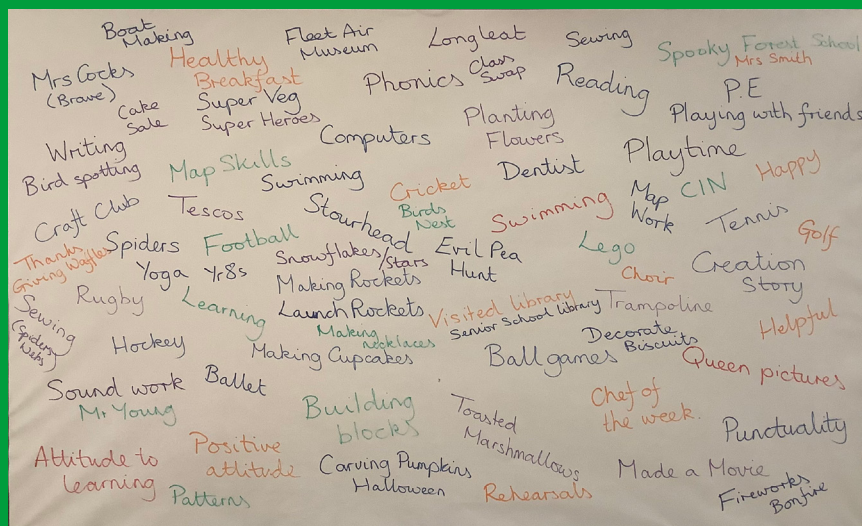 Boat
Making
Fleet Air
Museum
Longleat
Sewing
Spooky Forest School
Mrs Smith
Mrs Cocks
(Brave)
Healthy
Breakfast
Phonics
Class
Swap
Reading
P.E
Cake
Sale
Super Veg
Super Heroes
Planting
Flowers
Playing with friends
Writing
Computers
Playtime
Bird spotting
Map Skills
Swimming
Cricket
Dentist
Map
Work
CIN
Happy
Craft Club
Tescos
Stourhead
Birds
Nest
Swimming
Tennis
Golf
Thanks
Giving Waffles
Spiders
Football
Snowflakes
/Stars
Evil Pea
Hunt
Lego
Creation
Story
Yoga
Yr8s
Making Rockets
Choir
Sewing
(Spiders
Webs)
Rugby
Learning
Launch Rockets
Visited library
Senior School library
Trampoline
Helpful
Hockey
Making
necklaces
Making Cupcakes
Ball games
Decorate
Biscuits
Queen pictures
Sound work
Ballet
Mr Young
Building
blocks
Toasted
Marshmallows
Chef of
the week.
Punctuality
Attitude to
learning
Positive
attitude
Carving Pumpkins
Halloween
Made a Movie
Patterns
Rehearsals
Fireworks
Bonfire